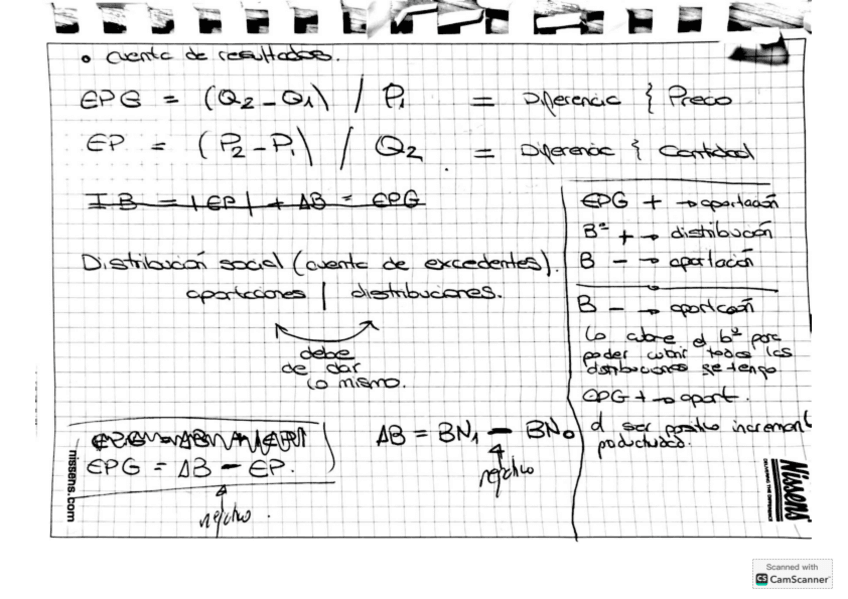 • Cuenta de resultados.
EPG = (Q2 - Q1) / P1 = Diferencia { Precio
EP = (P2 - P1) / Q2 = Diferencia { Cantidad
I B = |EP| + ΔB = EPG
Distribución social (cuenta de excedentes).
aportaciones | distribuciones.
debe
de dar
lo mismo.
EPG = ΔB - EP.
negativo.
ΔB = BN1 - BN0
negativo
EPG + → aportación
Bº + → distribución
B - → aportación
B - → aportación
Lo cubre el bº para
poder cubrir todas las
distribuciones se tengo
EPG + → aport.
al ser positivo increment
productividad.
nissens.com
Nissens
DELIVERING THE DIFFERENCE
Scanned with
CS CamScanner